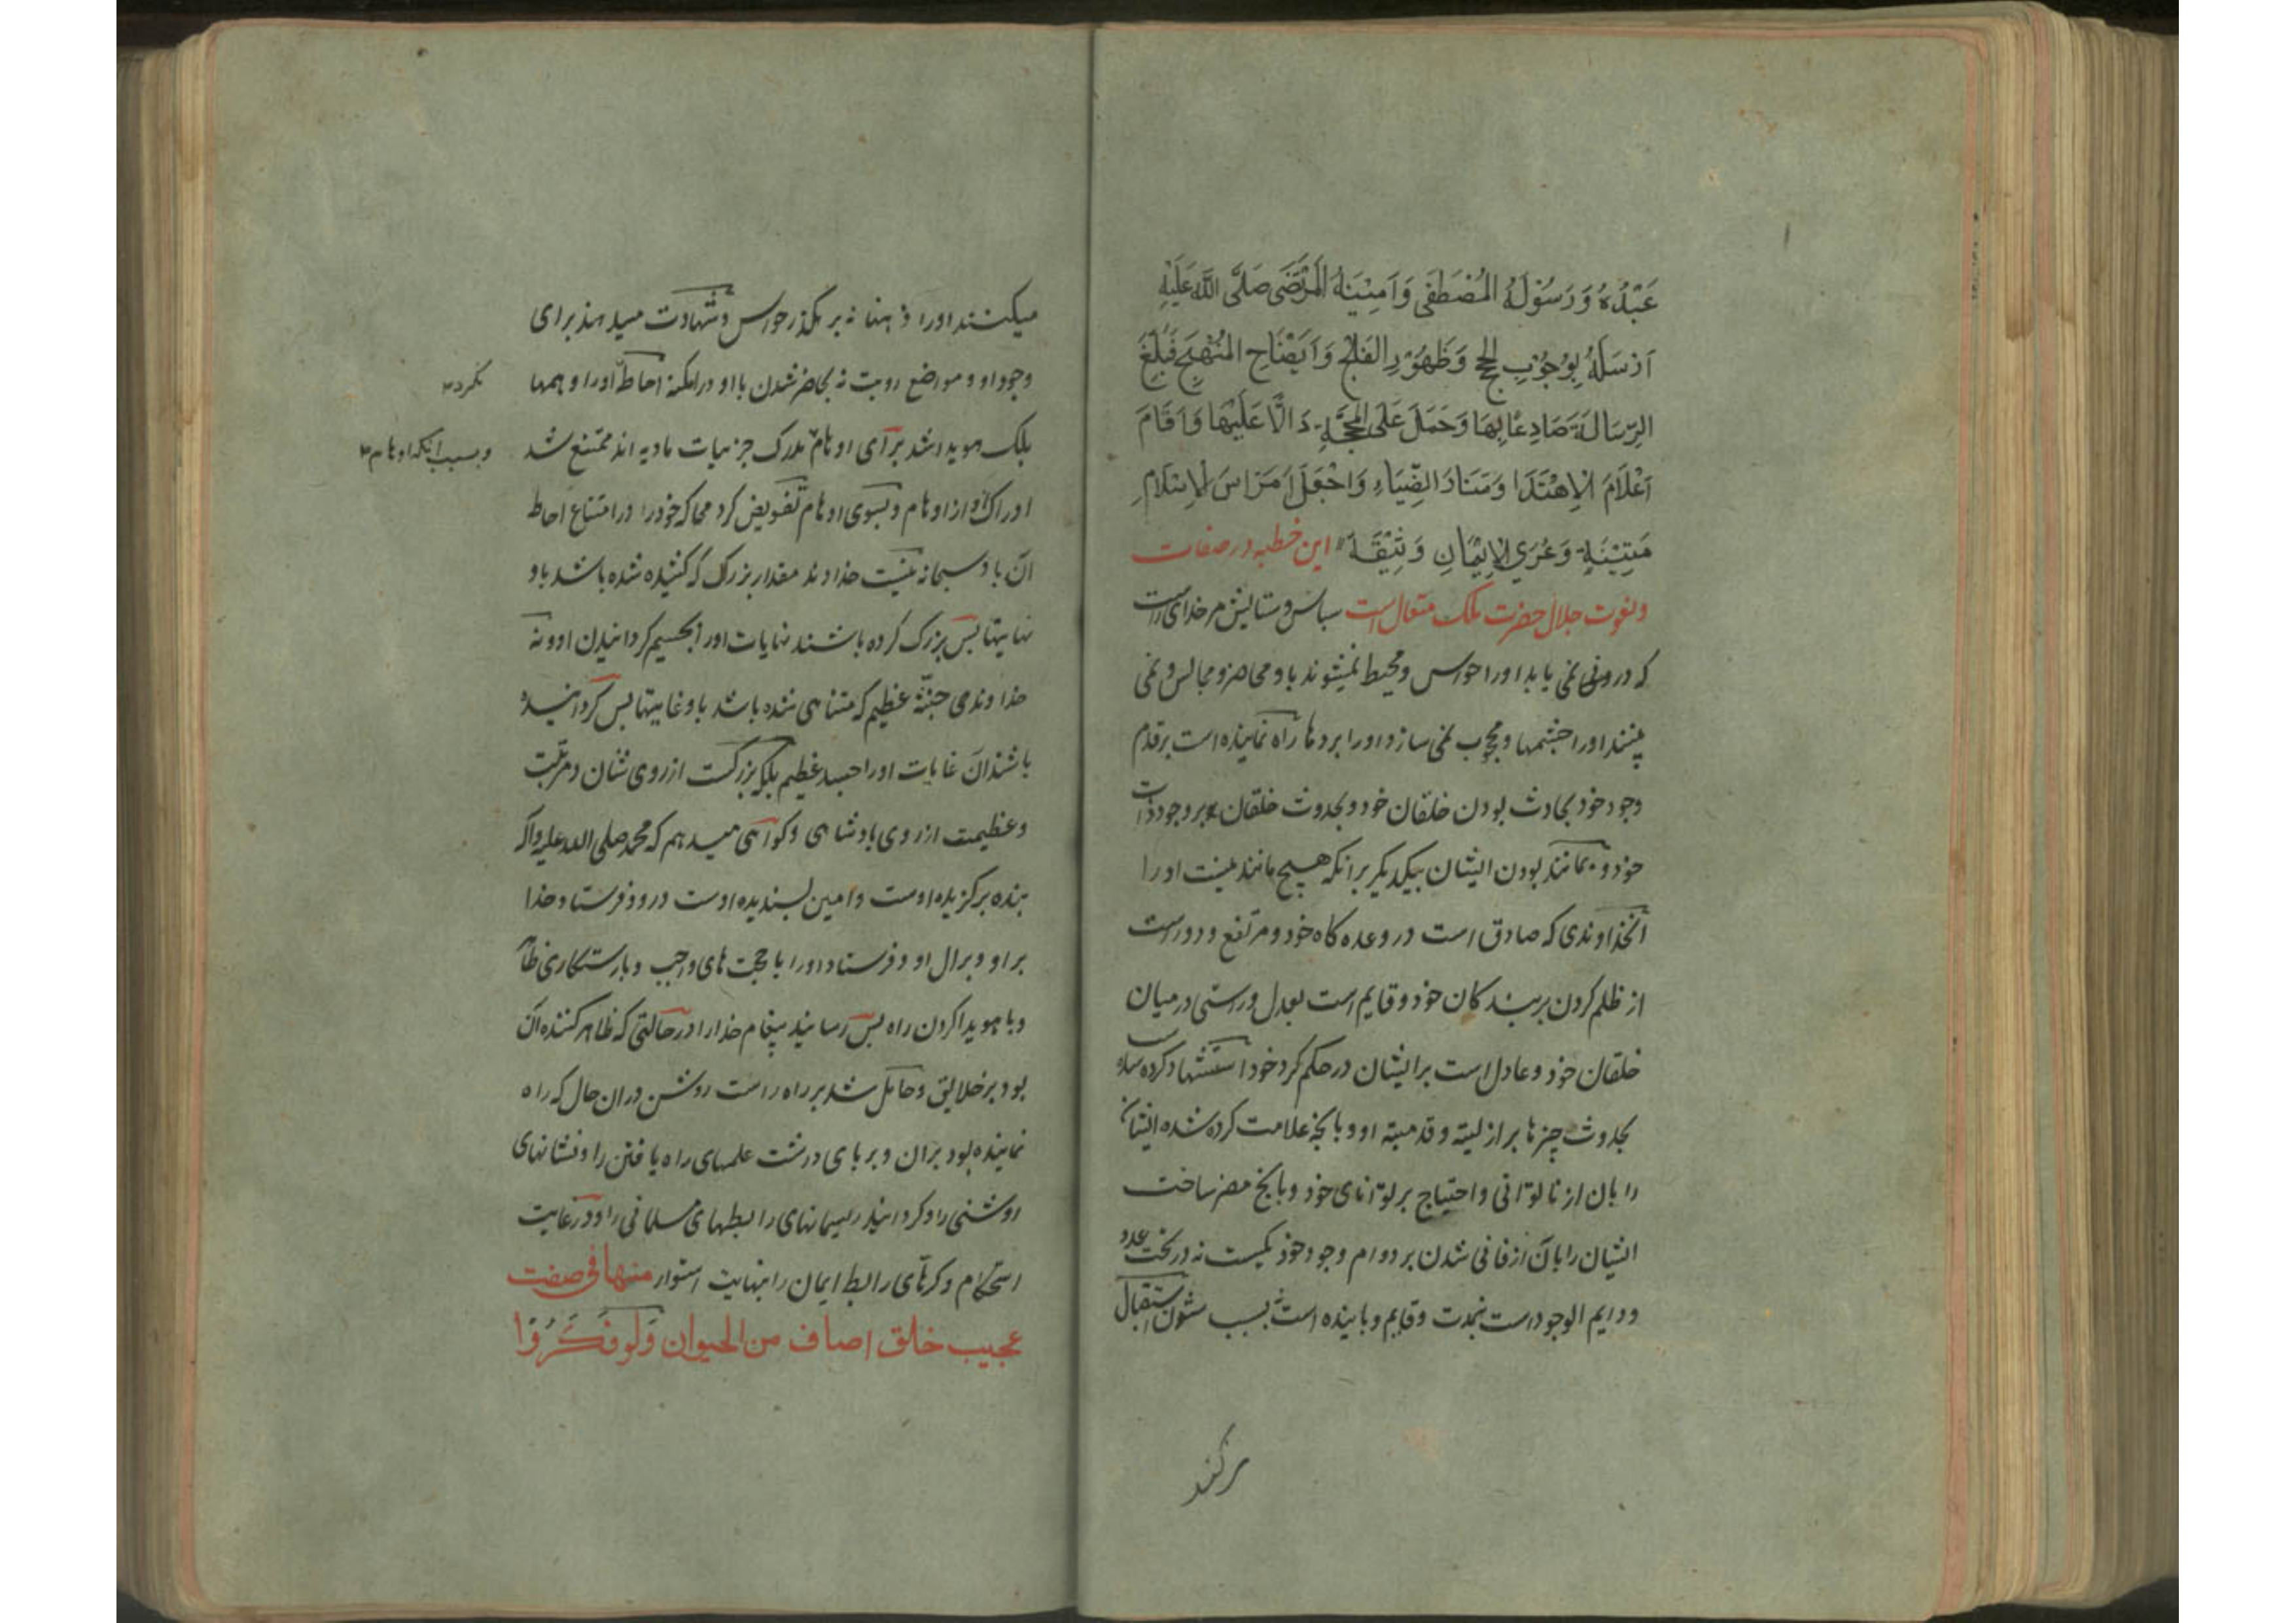 عَبْدُهُ وَرَسُوْلُهُ المُصْطَفَى وَاَمِيْنُهُ المُرْتَضَى صَلَّى اللَّه عَلَيْهِ
اَرْسَلَهُ بِوُجُوْبِ الحُجَجِ وَظُهُوْرِ الفَلَجِ وَاَيْضَاحِ المَنْهَجِ فَبَلَّغَ
الرِّسَالَةَ صَادِعًا بِهَا وَحَمَلَ عَلَى المَحَجَّةِ دَالًّا عَلَيْهَا وَاَقَامَ
اَعْلَامَ الْاِهْتَدَا وَمَنَارَ الضِّيَاءِ وَاجْعَلَ اَمْرَاسَ الْاِسْلَامِ
مَتِيْنَةٍ وَعُرَي الْاِيْمَانِ وَثِيْقَةً این خطبه در صفات
ونعوت جلال حضرت ملک متعال است سپاس وستایش مر خدای راست
که در نمی یابد اورا حواس ومحیط نمیشوند باو محاضر ومجالس ونمی
بینند اورا چشمها ومحجوب نمی سازد اورا پردها راه نماینده است بر قدم
وجود خود بحادث بودن خلقان خود وبحدوث خلقان بر وجود ذات
خود وبمانند بودن ایشان بیکدیکر بر انکه هیچ مانند نیست اورا
آنخداوندی که صادق است در وعده کاه خود ومرتفع ودور است
از ظلم کردن بر بندکان خود وقایم است بعدل وراستی در میان
خلقان خود وعادل است بر ایشان در حکم کرد خود استشهاد کرده
بحدوث چیزها بر ازلیته وقدمیته او وبانچه علامت کرده شده ایشان
را بان از ناتوانی واحتیاج بر توانای خود وبانچ مضر ساخت
ایشان را بان از فانی شدن بر دوام وجود خود یکیست نه در تحت عدد
ودایم الوجود است نمدت وقایم وپاینده است بسبب ستون استقبال
میکنند اورا ذهنها نه بر مکذر حواس وشهادت میدهند برای
وجود او ومواضع رویت نه بحاضر شدن با او در امکنه احاطه اورا وهمها
نکرد
بلک هویدا شد برای اوهام مدرک جزئیات مادیه اند ممتنع شد
وبسبب آنکه اوهام
ادراک او از اوهام وبسوی اوهام تفویض کرد محاکه خود را در امتناع احاط
آن باو سبحانه نیست خداوند مقدار بزرک که کشیده شده باشد باو
نهایتها پس بزرک کرده باشند نهایات اورا بجسیم کردانیدن او ونه
خداوندی جثّه عظیم که متناهی شده باشد باو غایتها پس کردانیده
باشند آن غایات اورا جسد عظیم بلکه بزرکست از روی شان ومرتبت
وعظیمت از روی پادشاهی وکواهی میدهم که محمد صلی الله علیه واله
بنده برکزیده اوست وامین پسندیده اوست درود فرستاد خدا
بر او وبر ال او وفرستاد اورا با حجت های واجب وبا رستکاری ظاهر
وبا هویدا کردن راه پس رسانید پیغام خدا را در حالتی که ظاهر کننده آن
بود بر خلایق وحامل شد بر راه راست روشن دران حال که راه
نماینده بود بران وبر پای درشت علمهای راه یافتن را ونشانهای
روشنی را وکردانید ریسمانهای رابطهای مسلمانی را در غایت
استحکام وکرهای رابط ایمان را بنهایت استوار منها فی صفت
عجیب خلق اصناف من الحیوان وَلَو فَکَّرُوْا